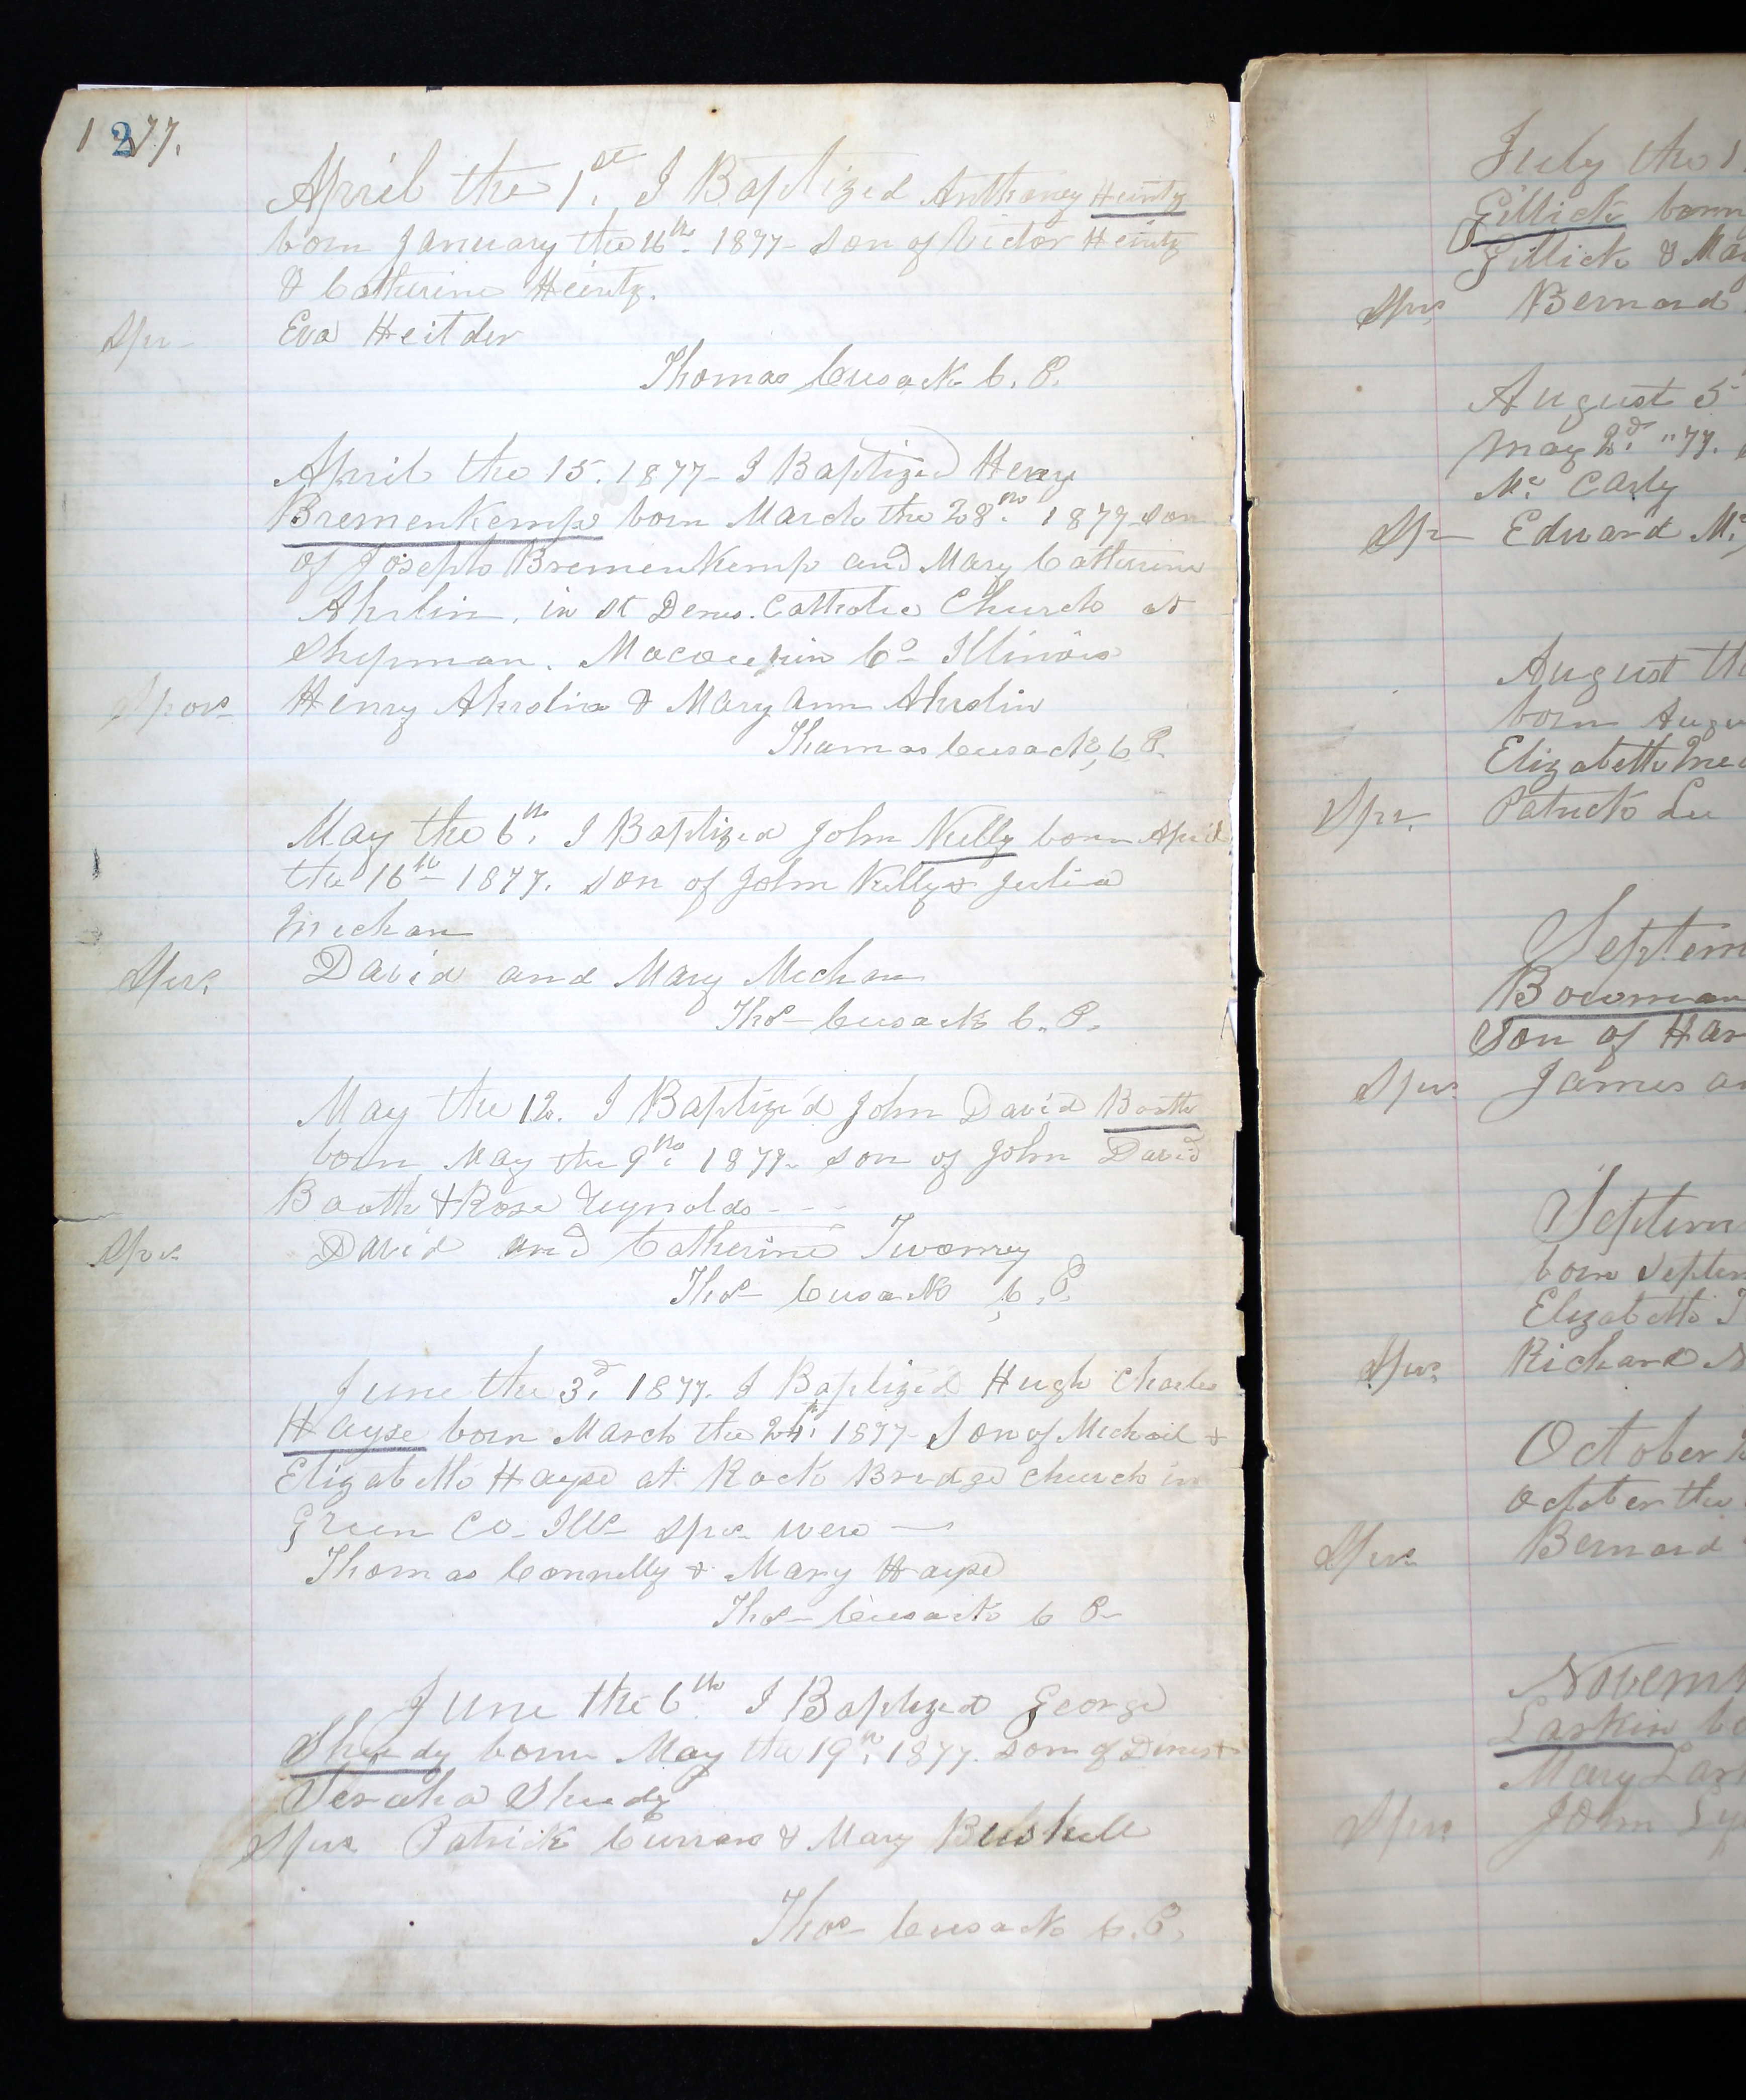 1877.
2
April the 1st. I Baptized Anthoney Heintz
born January the 16th. 1877 - son of Victor Heintz
& Catherine Heintz.
Spr - Eva Heitder
Thomas Cusack C. P.
April the 15. 1877 - I Baptized Henry
BremenKemp born March the 28th. 1877 - son
of Joseph BremenKemp and Mary Catherine
Ahrlin, in St Denis. Catholic Church at
Shipman. Macoupin Co Illinois
Spors Henry Ahrolin & Mary Ann Ahrolin
Thomas Cusack, C P.
May the 6th. I Baptized John Kelly born April
the 16th - 1877. son of John Kelly & Julia
Mechan
Sprs. David and Mary Mechan
Thos - Cusack C. P.
May the 12. I Baptize'd John David Booth
born May the 9th. 1877. son of John David
Booth & Rose Reynolds - - -
Sprs David and Catherine Twomey
Thos - Cusack C. P.
June the 3d. 1877. I Baptized Hugh Charles
Hayse born March the 24th. 1877 - Son of Michail &
Elizabeth Hayse at Rock Bridge Church in
Green Co - Ills - Sprs - were —
Thomas Connelly & Mary Hayse
Thos - Cusack C P -
June the 6th. I Baptized George
Sheedy born May the 19th. 1877. son of Denis &
Seraha Sheedy
Sprs Patrick Curran & Mary Buskell
Thos - Cusack C. P.
July the 1
Gillick born
Gillick & Mar
Sprs Bernard
August 5
May 2d. "77.
Mc. Carly
Sp - Edward Mc.
August the
born Augu
Elizabeth
Sprs. Patrick Lee
Septem
Bowman
Son of Har
Sprs James an
Septem
born Septem
Elizabeth
Sprs. Richard
October
October the
Sprs Bernard
Novem
Larkin bo
Mary Lar
Sprs John